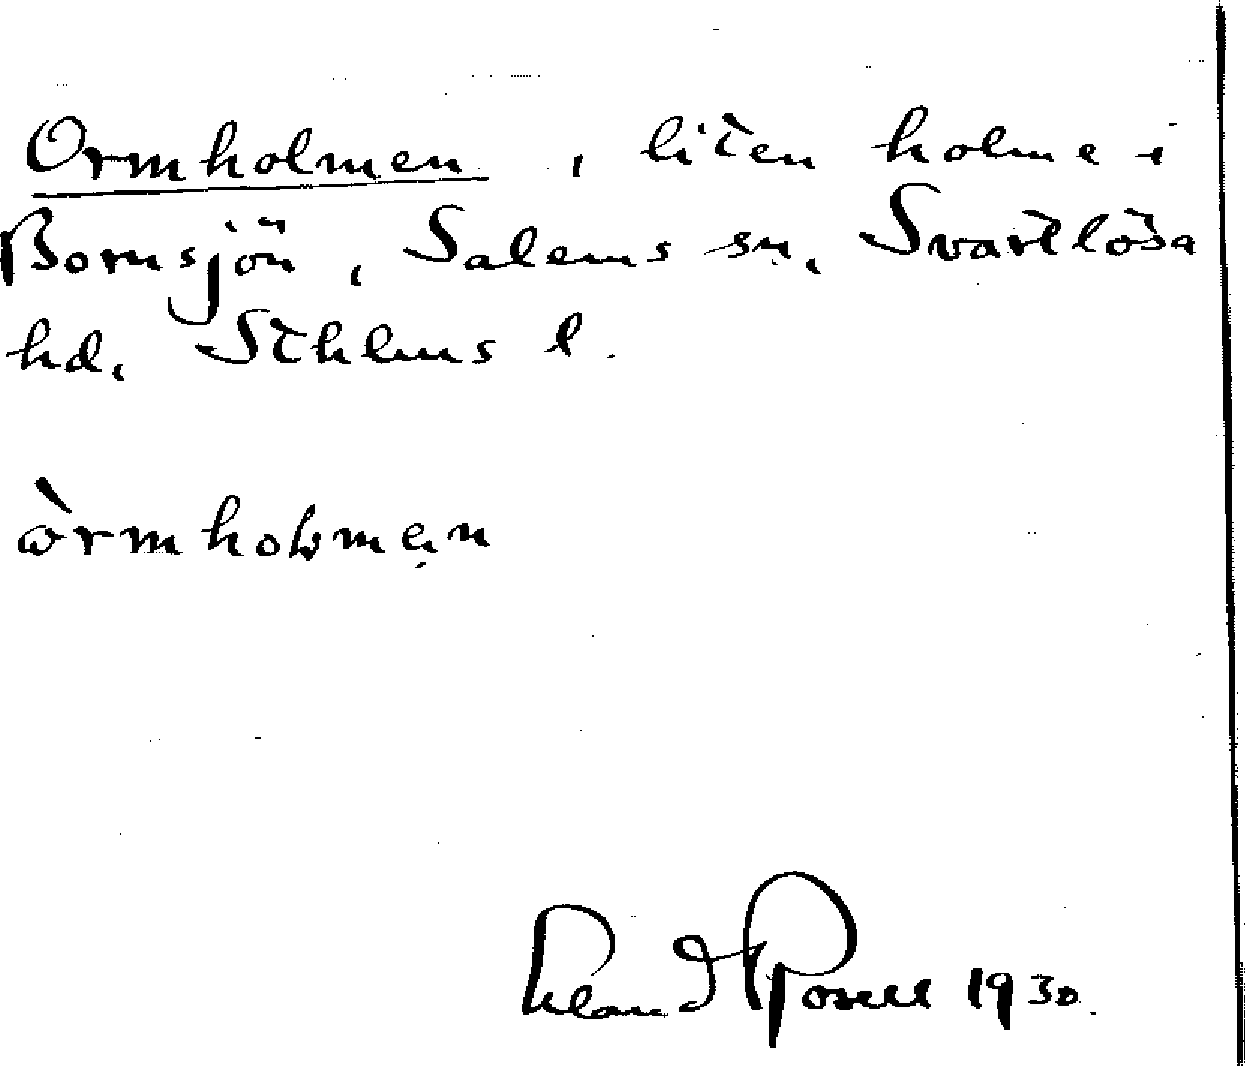 Ormholmen, liten holme i
Bornsjön, Salems sn, Svartlösa
hd, Sthlms l.
òrmholmen
1930.